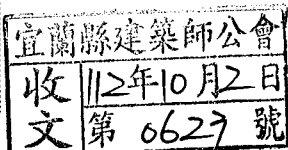 宜蘭縣建築師公會
收文
112年10月2日
第 0627 號